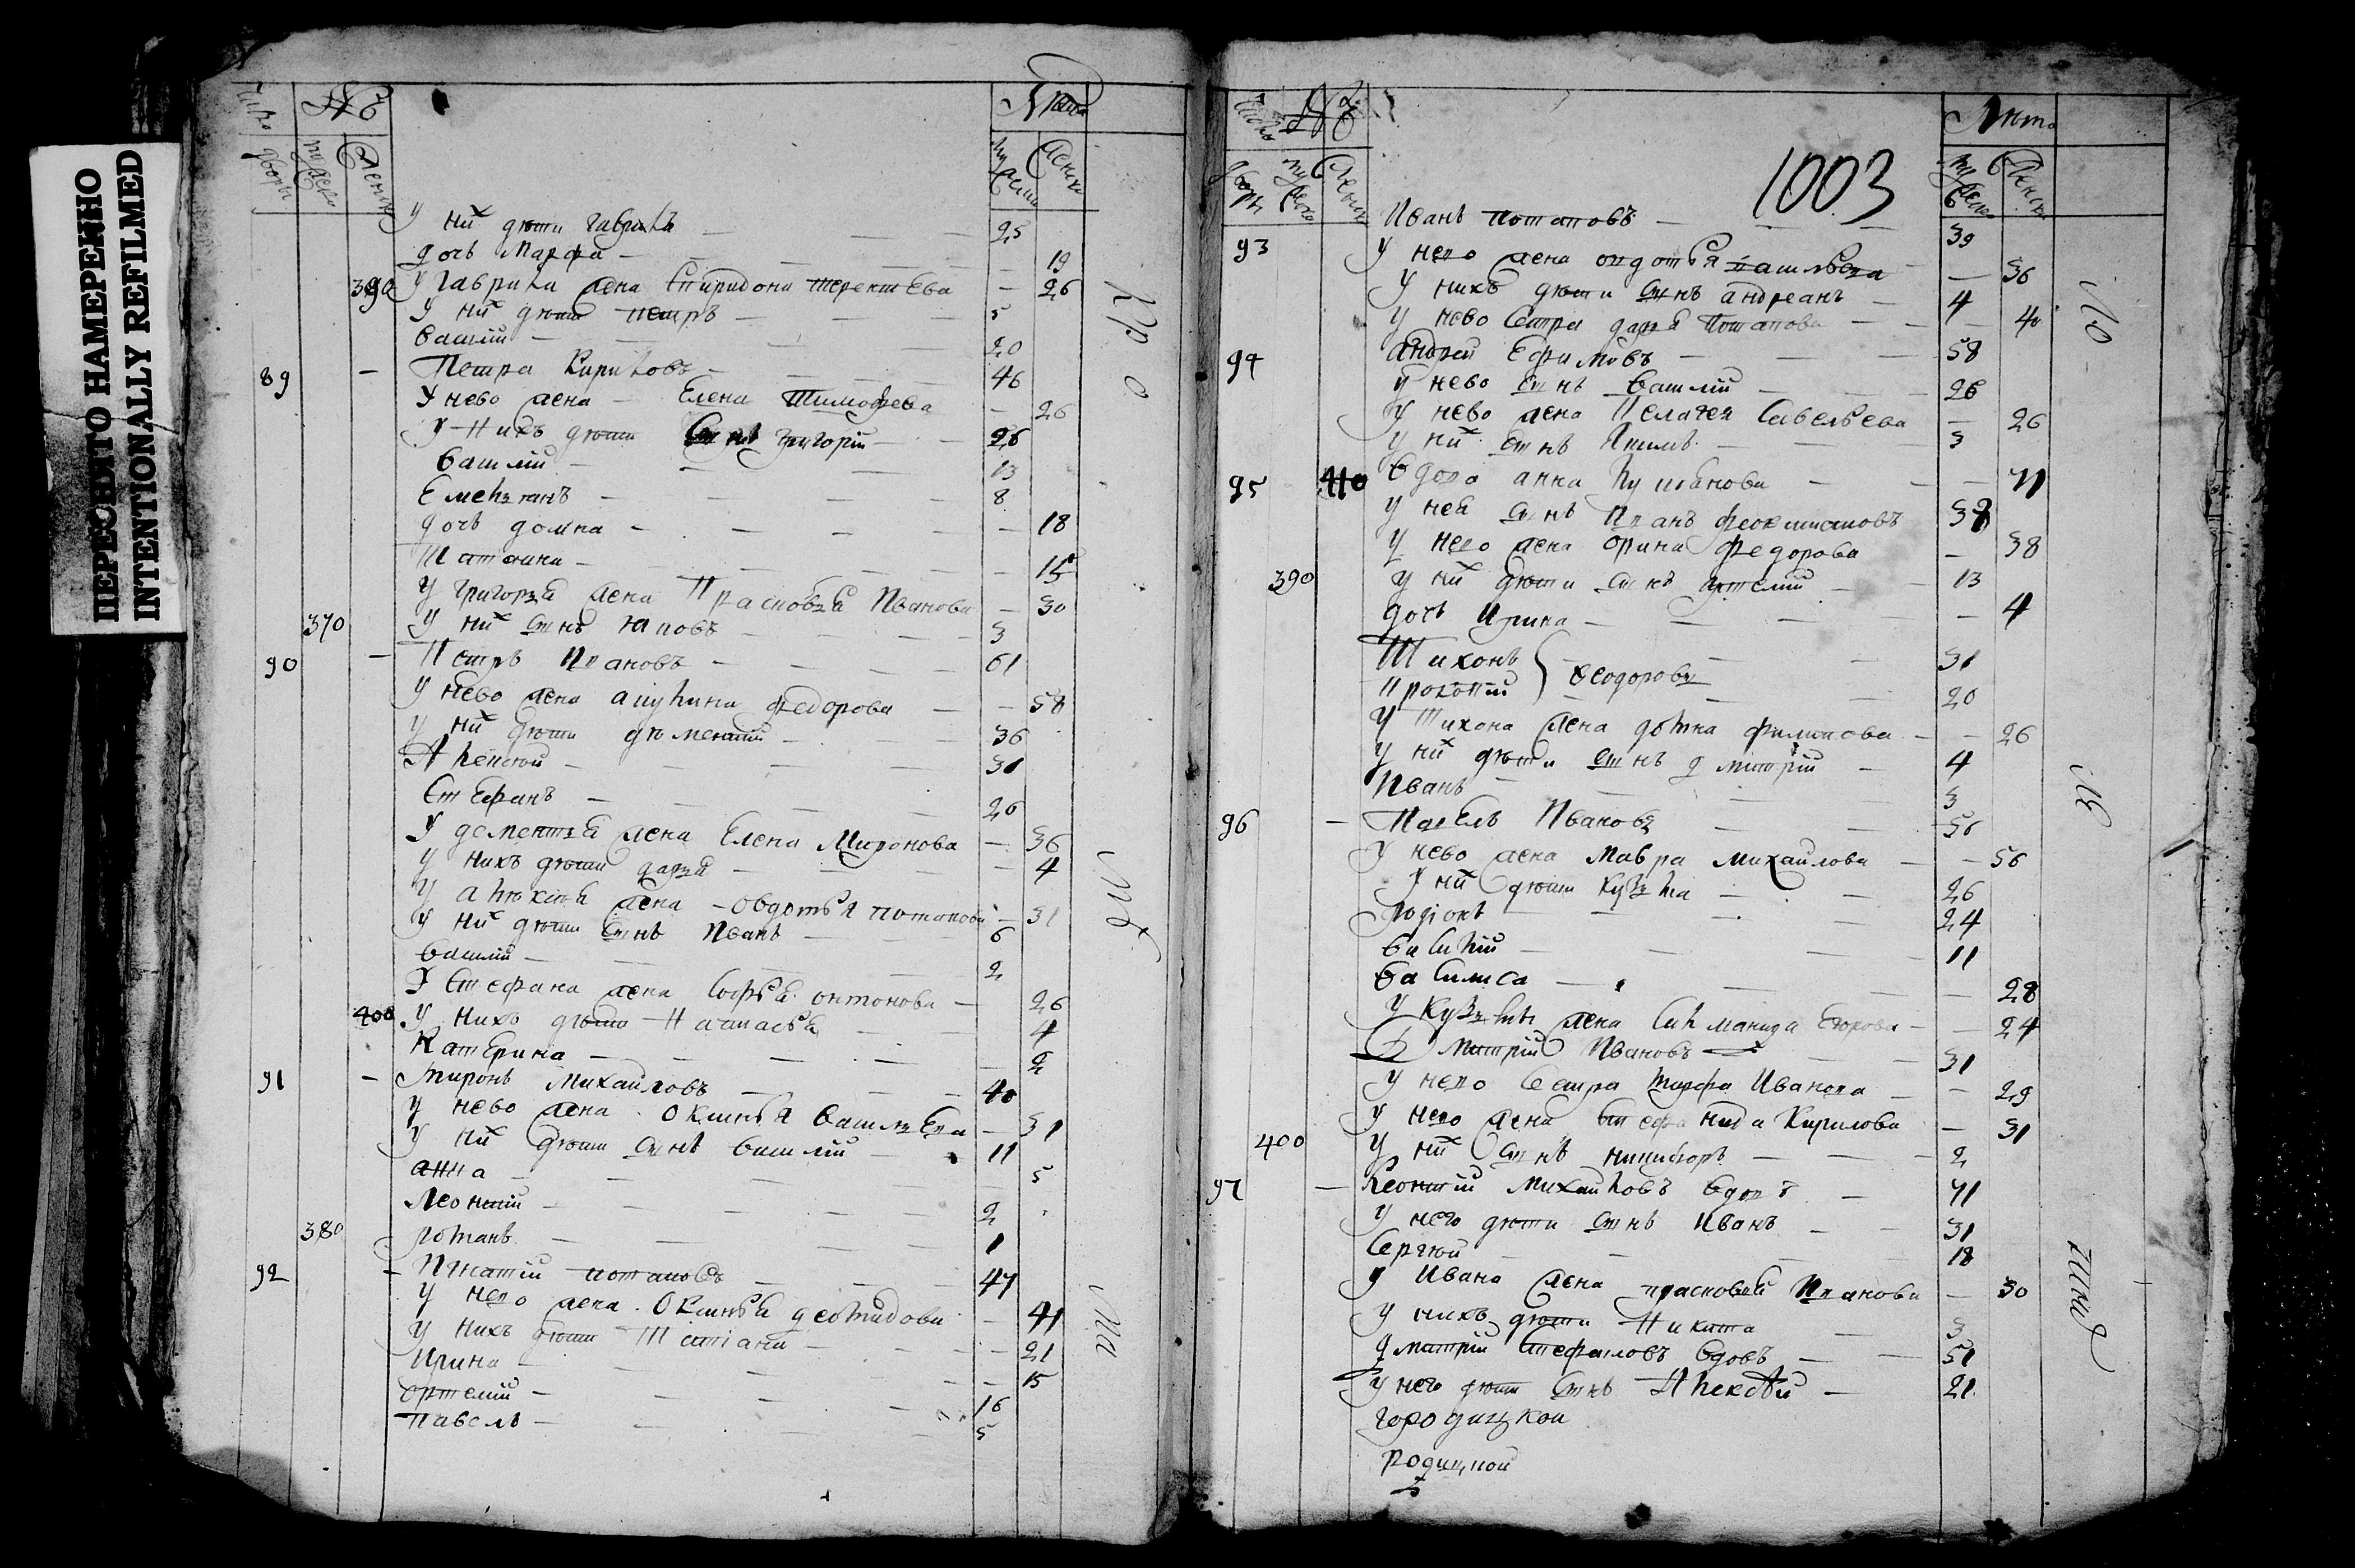 ПЕРЕСНЯТО НАМЕРЕННО
INTENTIONALLY REFILMED
Число дворы
№
мужеска
женска
Лета
мужеска
женска
У них дети гаврила — 25
дочь Марфа — 19
390 У гаврила жена Спиридона терентьева — 26
У них дети петръ — 5
василии — 20
89 — Петра Кириловъ — 46
У нево жена — Елена Тимофеева — 26
У нихъ дети Сынъ григории — 26
василии — 13
Емельянъ — 8
дочь домна — 18
Татьяна — 15
У григорья жена Прасковья Иванова — 30
370 У них сынъ яковъ — 3
90 — Петръ Ивановъ — 61
У нево жена акулина федорова — 58
У них дети дементии — 36
Алексеи — 31
Стефанъ — 20
У дементья жена Елена Миронова — 36
У нихъ дети дарья — 4
У алексея жена — овдотья потапова — 31
У них дети сынъ Иванъ — 6
василии — 2
У Стефана жена Софья онтонова — 26
400 У нихъ дети Настасья — 4
Катерина — 2
91 — миронъ михаиловъ — 40
У нево жена Оксинья васильева — 31
У них дети сынъ василии — 11
анна — 5
Леонтии — 2
380 романъ — 1
92 — Игнатии потаповъ — 47
У него жена Оксинья демидова — 41
У нихъ дети Татиана — 21
Ирина — 15
ортемии — 16
павелъ — 5
Про
Число дворы
№
мужеска
женска
1003
Лета
мужеска
женска
93 Иванъ потаповъ — 39
У него жена овдотья васильева — 36
У нихъ дети сынъ андреанъ — 4
У нево Сестра дарья потапова — 40
94 андреи Ефимовъ — 58
У нево сынъ василии — 26
У нево жена Пелагея Савельева — 26
У них сынъ Якимъ — 3
95 410 вдова анна — 71
У неи сынъ Иванъ феоктистовъ — 38
У него жена орина федорова — 38
390 У них дети сынъ артемии — 13
дочь Ирина — 4
Тихонъ — 31
Прокопии } феодоровы — 20
У Тихона жена домна филипова — 26
У них дети сынъ дмитрии — 4
Иванъ — 3
96 — Павелъ Ивановъ — 56
У нево жена мавра михаилова — 56
У них дети кузьма — 26
родионъ — 24
василии — 11
василиса — 28
У кузьмы жена — 24
Дмитрии Ивановъ — 31
У него Сестра марфа Иванова — 29
У него жена стефанида Кирилова — 31
400 У них сынъ никифоръ — 2
97 — Леонтии михаиловъ вдовъ — 71
У него дети сынъ иванъ — 31
Сергеи — 18
У Ивана жена прасковья Иванова — 30
У нихъ дети Никита — 3
дмитрии стефановъ вдовъ — 51
У него дети сынъ Алексеи — 21
городицкои
родицкои
По